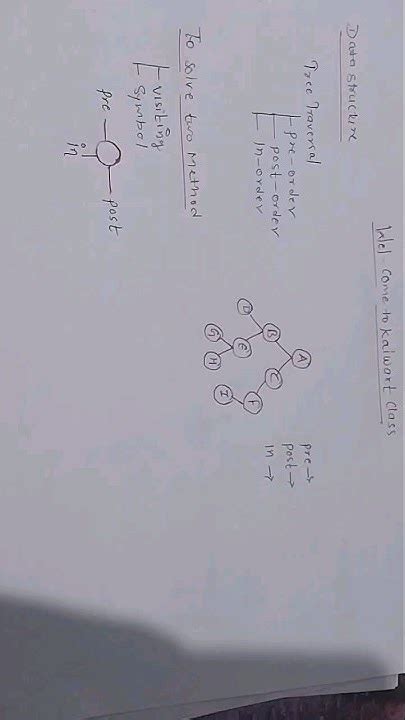 Wel come to kaiwart class
Data structure
Tree Traversal
pre-order
post-order
In-order
To solve two Method
visiting
symbol
pre
post
in
A
B
C
D
E
F
G
H
I
pre →
post →
In →